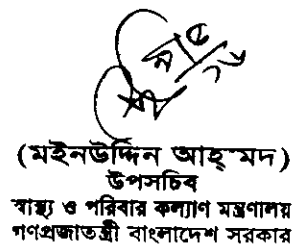 (মইনউদ্দিন আহ্‌মদ)
উপসচিব
স্বাস্থ্য ও পরিবার কল্যাণ মন্ত্রণালয়
গণপ্রজাতন্ত্রী বাংলাদেশ সরকার